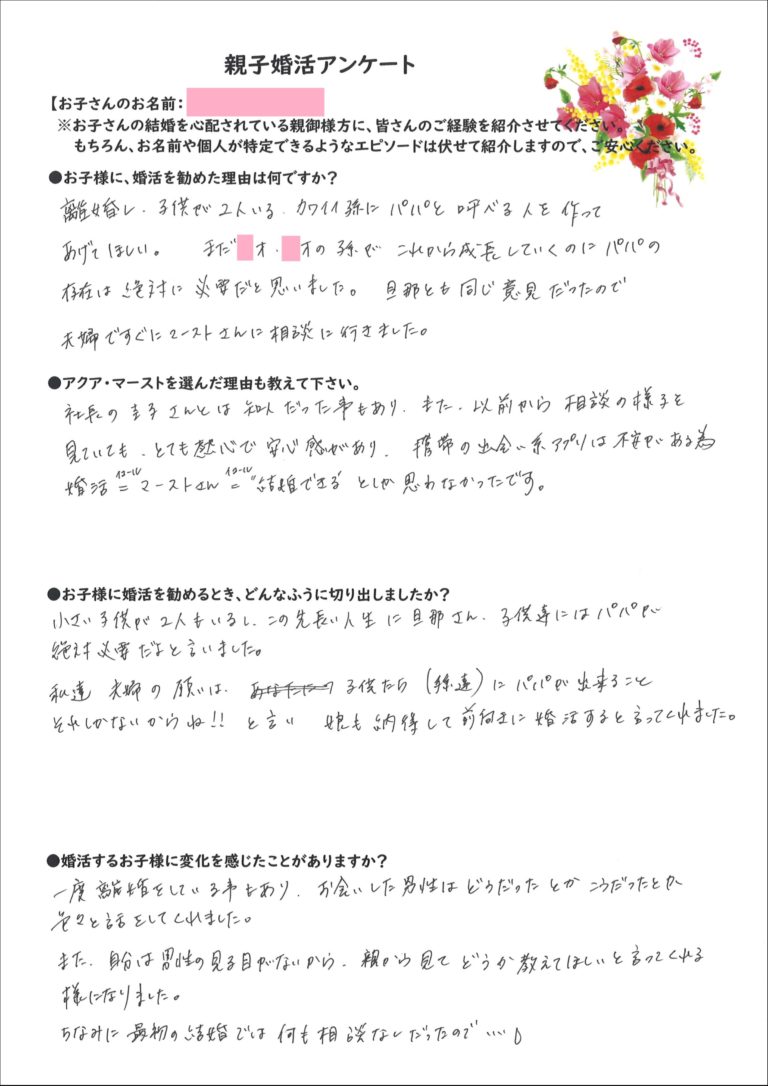 親子婚活アンケート
【お子さんのお名前：
※お子さんの結婚を心配されている親御様方に、皆さんのご経験を紹介させてください。
もちろん、お名前や個人が特定できるようなエピソードは伏せて紹介しますので、ご安心ください。
●お子様に、婚活を勧めた理由は何ですか？
離婚し、子供が2人いる、カワイイ孫にパパと呼べる人を作って
あげてほしい。 まだ 才、 才の孫が これから成長していくのにパパの
存在は絶対に必要だと思いました。 旦那とも同じ意見だったので
夫婦ですぐにマーストさんに相談に行きました。
●アクア・マーストを選んだ理由も教えて下さい。
社長の圭子さんとは知人だった事もあり、また、以前から相談の様子を
見ていても、とても熱心で安心感があり、携帯の出会い系アプリは不安がある為
婚活 イコール = マーストさん イコール = "結婚できる" としか思わなかったです。
●お子様に婚活を勧めるとき、どんなふうに切り出しましたか？
小さい子供が2人もいるし、この先長い人生に旦那さん、子供達にはパパが
絶対必要だよと言いました。
私達夫婦の願いは、 子供たち（孫達）にパパが出来ること
それしかないからね!! と言い 娘も納得して前向きに婚活すると言ってくれました。
●婚活するお子様に変化を感じたことがありますか？
一度離婚をしている事もあり、お会いした男性はどうだったとかこうだったとか
色々と話をしてくれました。
また、自分は男性の見る目がないから、親から見てどうか教えてほしいと言ってくれる
様になりました。
ちなみに最初の結婚では何も相談なしだったので…